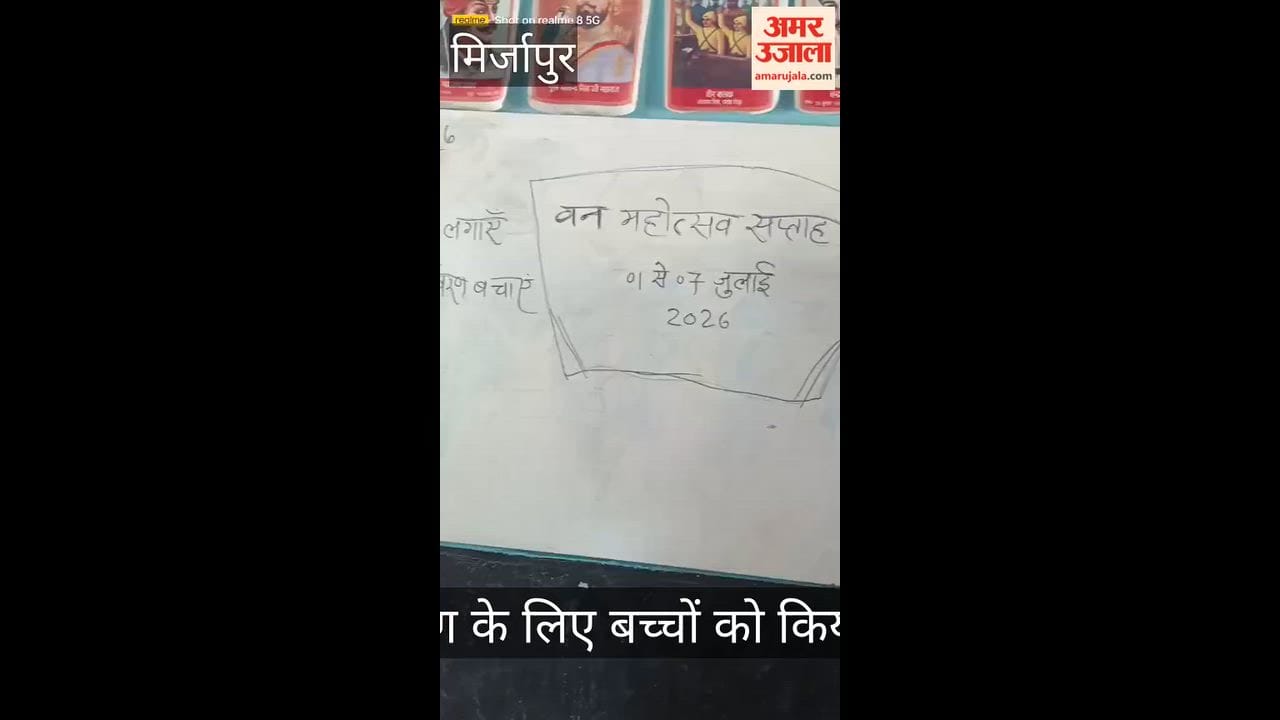 realme Shot on realme 8 5G
मिर्जापुर
अमर
उजाला
amarujala.com
वीर बालक
6
लगाएँ
वन महोत्सव सप्ताह
बचाएं
01 से 07 जुलाई
2026
के लिए बच्चों को